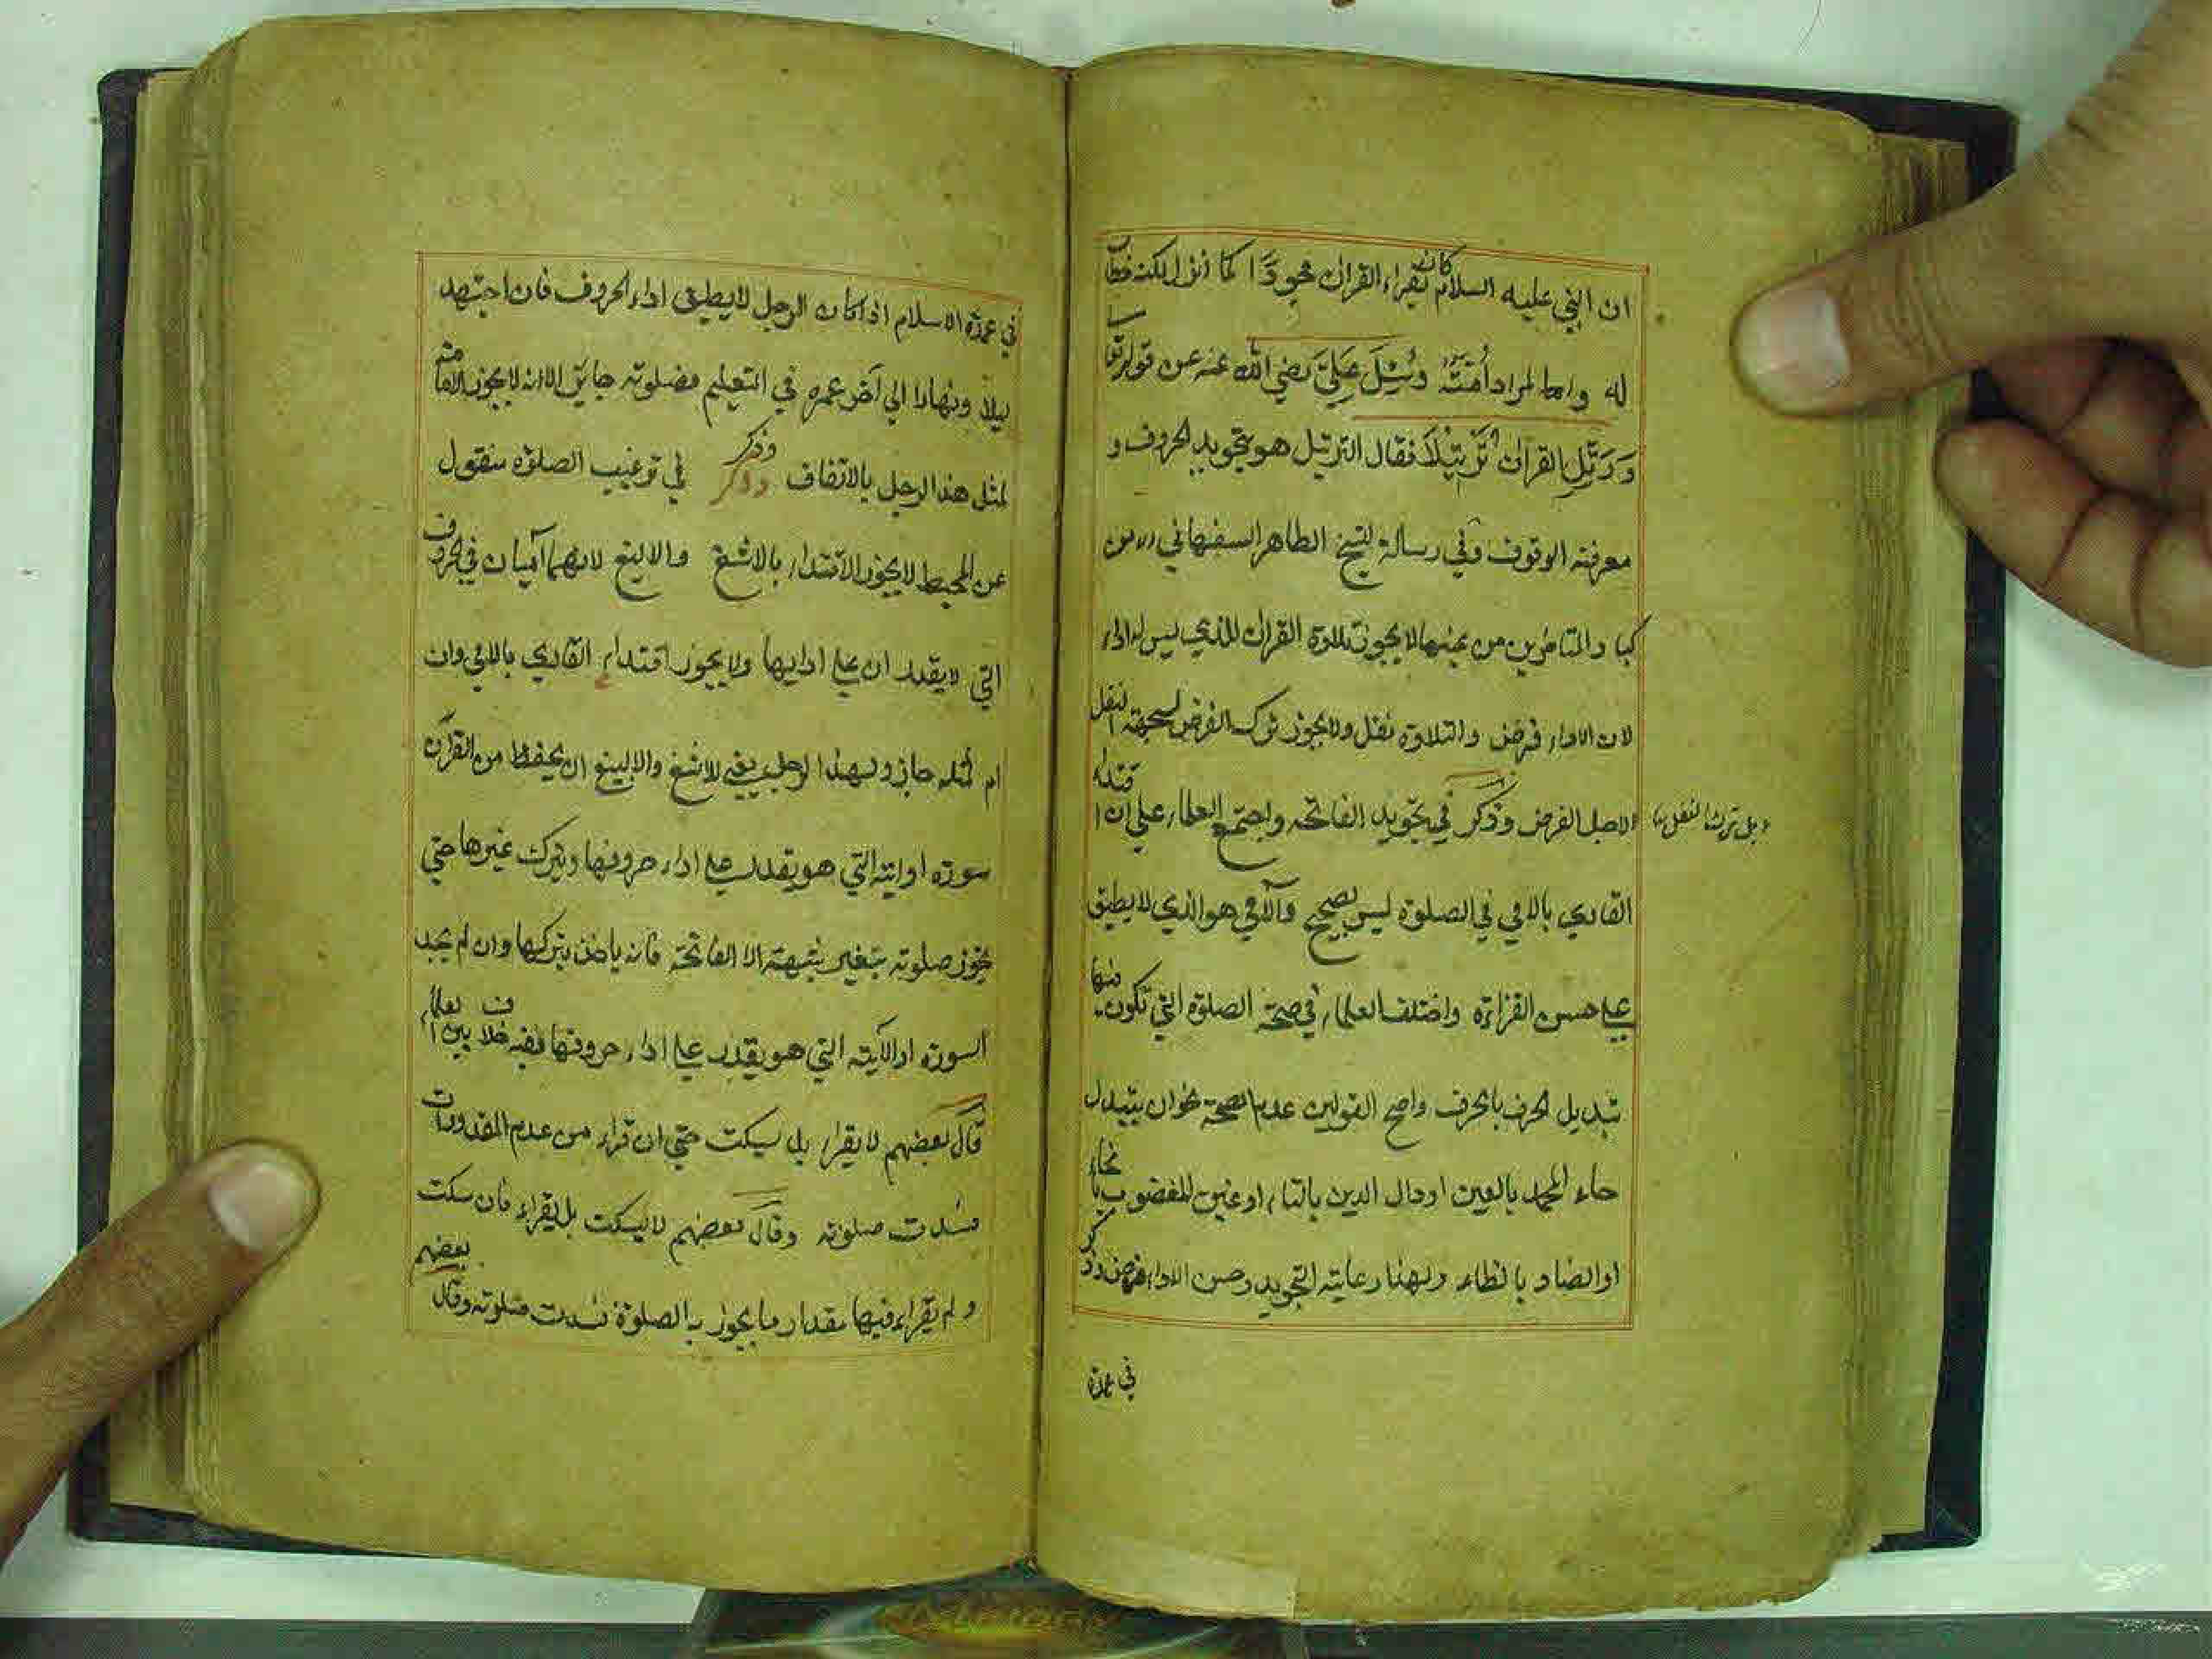 ان النبي عليه السلام كان يقراء القران مجودا كما انزل لكنه خطاب
له والمراد أمته وسئل علي رضي الله عنه عن قوله تعا
وَرَتِّلِ القرانَ تَرْتِيْلًا فقال الترتيل هو تجويد الحروف و
معرفته الوقوف وفي رسالة لشيخ الطاهر السفهاني
والمتاخرين من بينها لا يجوز تلاوة القران للذي ليس له اداء
لان الاداء فرض والتلاوة نفل ولا يجوز ترك الفرض النفل
بل ترك النفل
لاجل الفرض وذكر في تجويد الفاتحه واجتمع العلماء علي ان اقتداء
القاري بالامي في الصلوة ليس بصحيح والامي هو الذي لا يطيق
علي حسن القراءة واختلف العلماء في صحة الصلوة التي تكون فيها
تبديل الحرف بالحرف واصح القولين عدم الصحة نحو ان يتبدل
حاء الحمد بالعين او دال الدين بالتاء او غين المغضوب بالخاء
او الضاد بالظاء ولهذا رعاية التجويد وحسن الاداء فرض وذكر
في عمدة
في عمدة الاسلام اذا كان الرجل لا يطيق اداء الحروف فان اجتهد
ليلا ونهارا الي آخر عمره في التعليم فصلوته جايز الا انه لا يجوز الامامة
لمثل هذا الرجل بالاتفاق وذكر في ترغيب الصلوة منقول
عن المحيط لا يجوز الاقتداء بالاشغ والاليغ لانهما آميان في الحروف
التي لا يقدران علي ادايها ولا يجوز اقتداء القاري بالامي وان
ام لمثله جاز ولهذا للاشغ والاليغ ان يحفظ من القرآن
سورة او ايته التي هو يقدر علي اداء حروفها ويترك غيرها حتي
يجوز صلوته بغير شبهة الا الفاتحة فانه يتركها وان لم يجد
السورة او الآية التي هو يقدر علي اداء حروفها ففيه خلاف بين العلماء
قال بعضهم لا يقراء بل يسكت حتي ان قراء من عدم المقدورات
فسدت صلوته وقال بعضهم لا يسكت بل يقراء فان سكت
ولم يقراء فيها مقدار ما يجوز به الصلوة فسدت صلوته وقال بعضهم